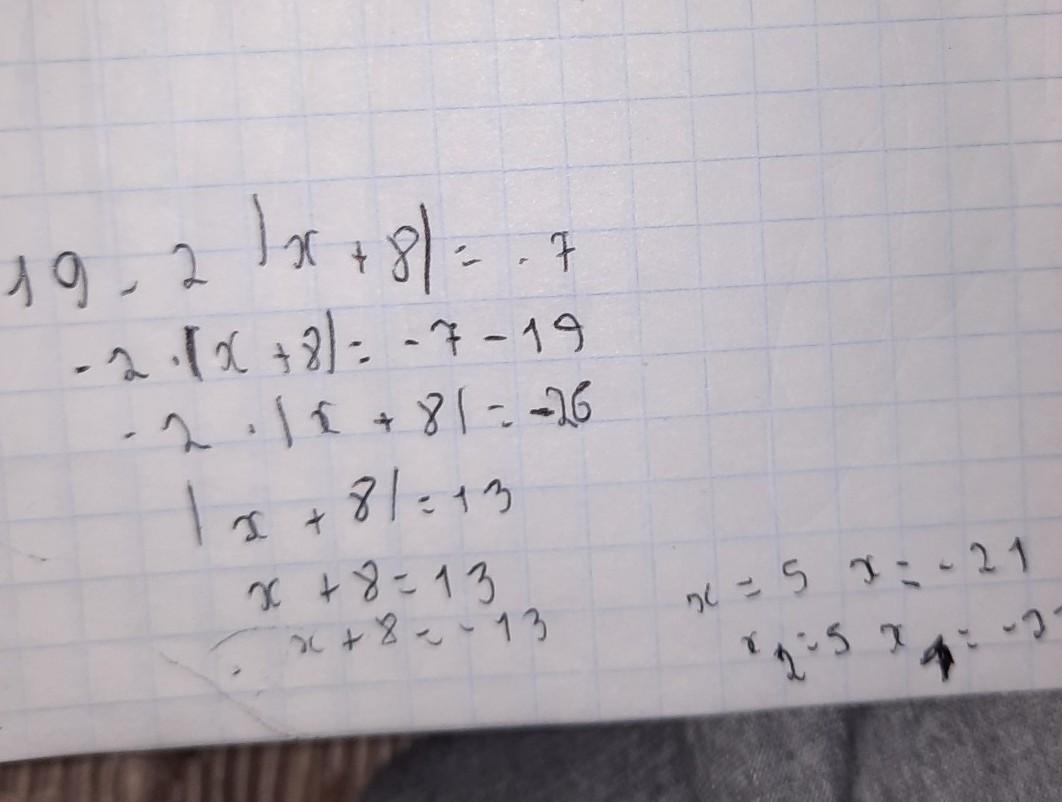 19 - 2 |x + 8| = - 7
- 2 · |x + 8| = - 7 - 19
- 2 · |x + 8| = -26
|x + 8| = 13
x + 8 = 13
x + 8 = - 13
x = 5 x = - 21
x₂ = 5 x₁ = -2